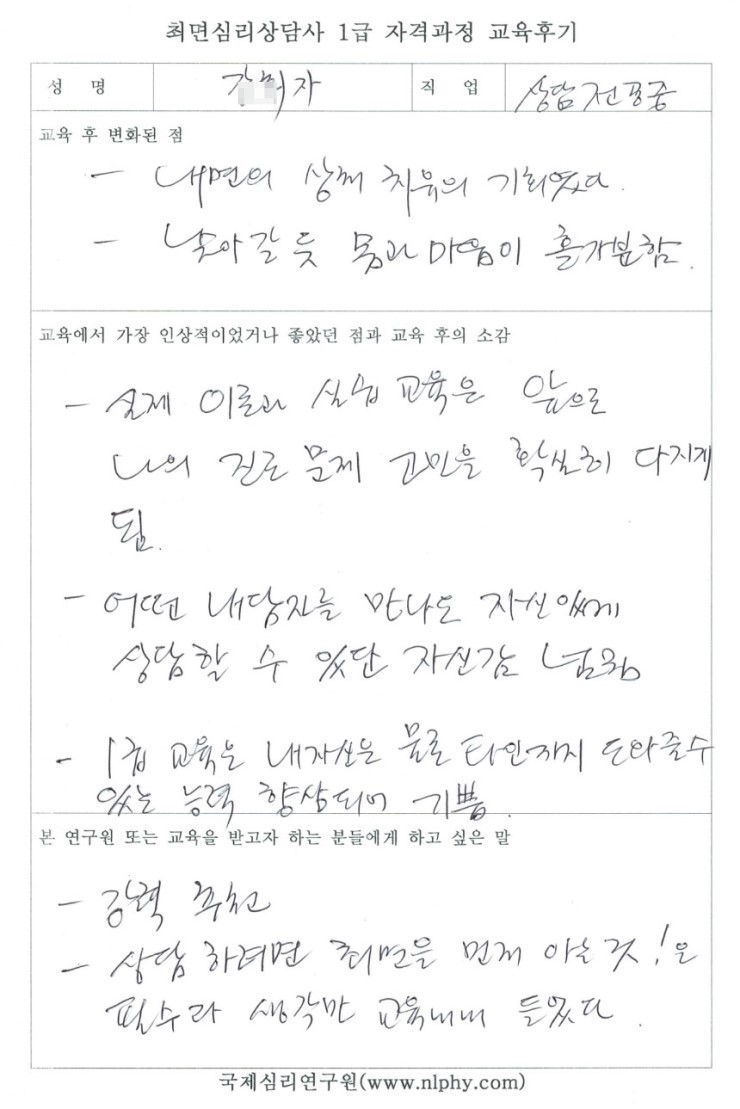 최면심리상담사 1급 자격과정 교육후기
성 명 강 자 직 업 상담 전공중
교육 후 변화된 점
- 내면의 상처 치유의 기회였다.
- 날아갈 듯 몸과 마음이 홀가분함.
교육에서 가장 인상적이었거나 좋았던 점과 교육 후의 소감
- 실제 이론과 실습 교육은 앞으로
나의 진로 문제 고민을 확실히 다지게
됨.
- 어떤 내담자를 만나도 자신있게
상담할 수 있단 자신감
- 1급 교육은 내자신은 물론 타인까지 도와줄수
있는 능력 향상되어 기쁨.
본 연구원 또는 교육을 받고자 하는 분들에게 하고 싶은 말
- 강력 추천
- 상담 하려면 최면을 먼저 아는 것! 은
필수라 생각만 교육내내 들었다.
국제심리연구원(www.nlphy.com)